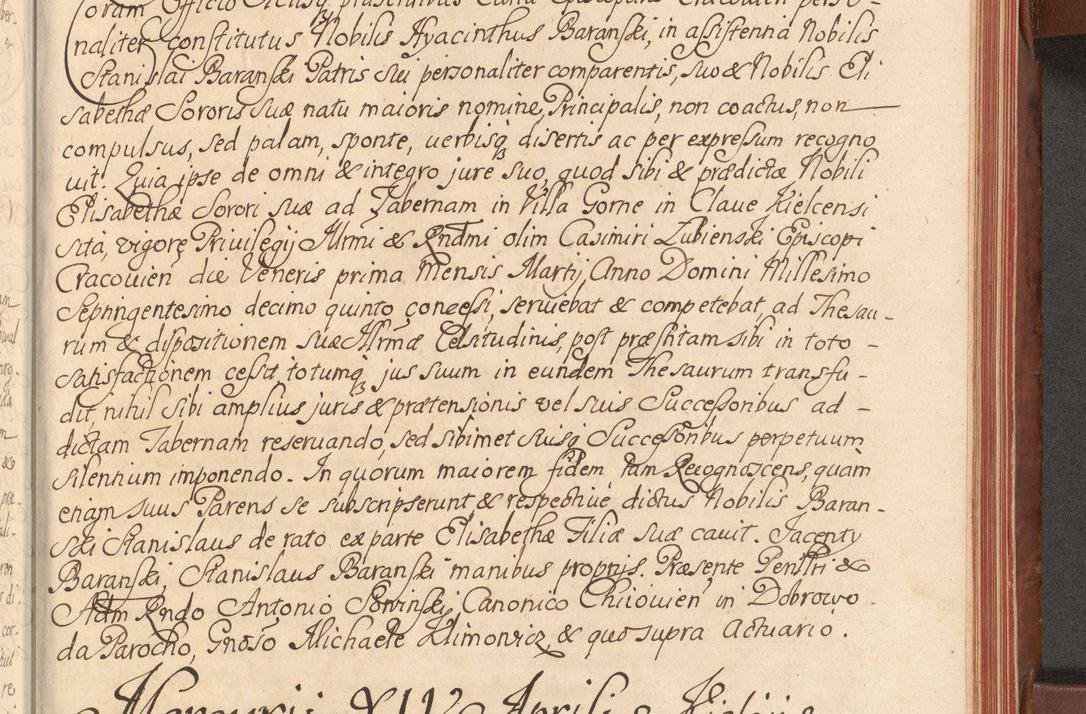 Coram Officio Actisq3 præsentibus Curiæ Episcopalis Cracovien perso-
naliter constitutus Nobilis Hyacinthus Baranski, in assistentia Nobilis
Stanislai Baranski Patris sui personaliter comparentis, suo & Nobilis Eli
sabethæ Sororis suæ natu maioris nomine, Principalis, non coactus, non
compulsus, sed palam, sponte, verbisq3 disertis ac per expressum recogno
vit. Quia ipse de omni & integro jure suo, quod sibi & prædictæ Nobili
Elisabethæ Sorori suæ ad Tabernam in Villa Gorne in Clave Kielcensi
sita, vigore Privilegij Illrmi & Rndmi olim Casimiri Łubienski Episcopi
Cracovien die Veneris prima Mensis Martij, Anno Domini Millesimo
Septingentesimo decimo quinto concessi, serviebat & competebat, ad Thesau-
rum & dispositionem suæ Illrmæ Celsitudinis, post præstitam sibi in toto -
satisfactionem cessit, totumq3 jus suum in eundem Thesaurum transfu-
dit, nihil sibi amplius juris & prætensionis vel suis Successoribus ad -
dictam Tabernam reservando, sed sibimet suisq3 Successoribus perpetuum
silentium imponendo. In quorum maiorem fidem tam Recognoscens, quam
etiam suus Parens se subscripserunt, & respective dictus Nobilis Baran-
ski Stanislaus de rato ex parte Elisabethæ Filiæ suæ cavit. Jacenty
Baranski, Stanislaus Baranski manibus propriis. Præsente Penltri &
Adm Rndo Antonio Sowinski, Canonico Chiiovien in Dobrowo-
da Parocho, Gnoso Michaele Klimowicz, & quo supra Actuario.
Mercurii XIV Aprilis Kielciis